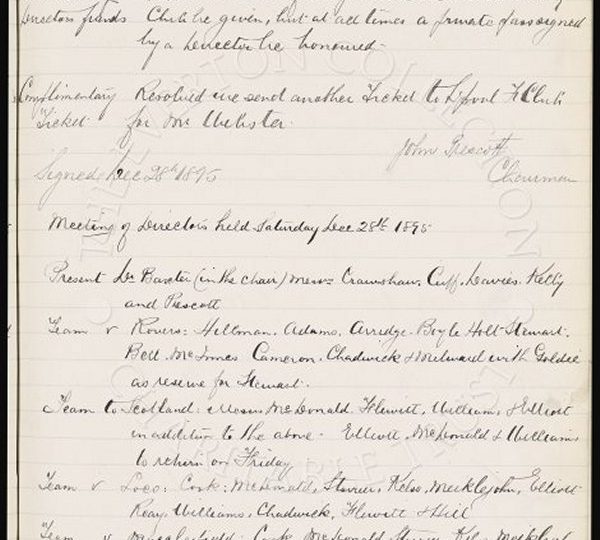 Directors friends Club be given, but at all times a private pass signed
by a Director be honoured.
Complimentary Resolved we send another Ticket to L'pool F Club
Ticket for Mr Webster.
John Prescott
Signed Dec 28th 1895 Chairman
Meeting of Directors held Saturday Dec 28th 1895
Present Dr Baxter (in the chair) Messrs Crawshaw, Cuff, Davies, Kelly
and Prescott
Team v Rovers: Hillman, Adams, Arridge, Boyle Holt Stewart,
Bell, McInnes Cameron, Chadwick & Milward with Goldie
as reserve for Stewart.
Team to Scotland: Messrs McDonald, Flewitt, Williams & Elliott
in addition to the above. Elliott, McDonald & Williams
to return on Friday
Team v Loco: Cook, McDonald, Storrier, Kelso, Meiklejohn, Elliott
Reay, Williams, Chadwick, Flewitt & Hill
Team v Cook McDonald Storrier Kelso Meiklejohn